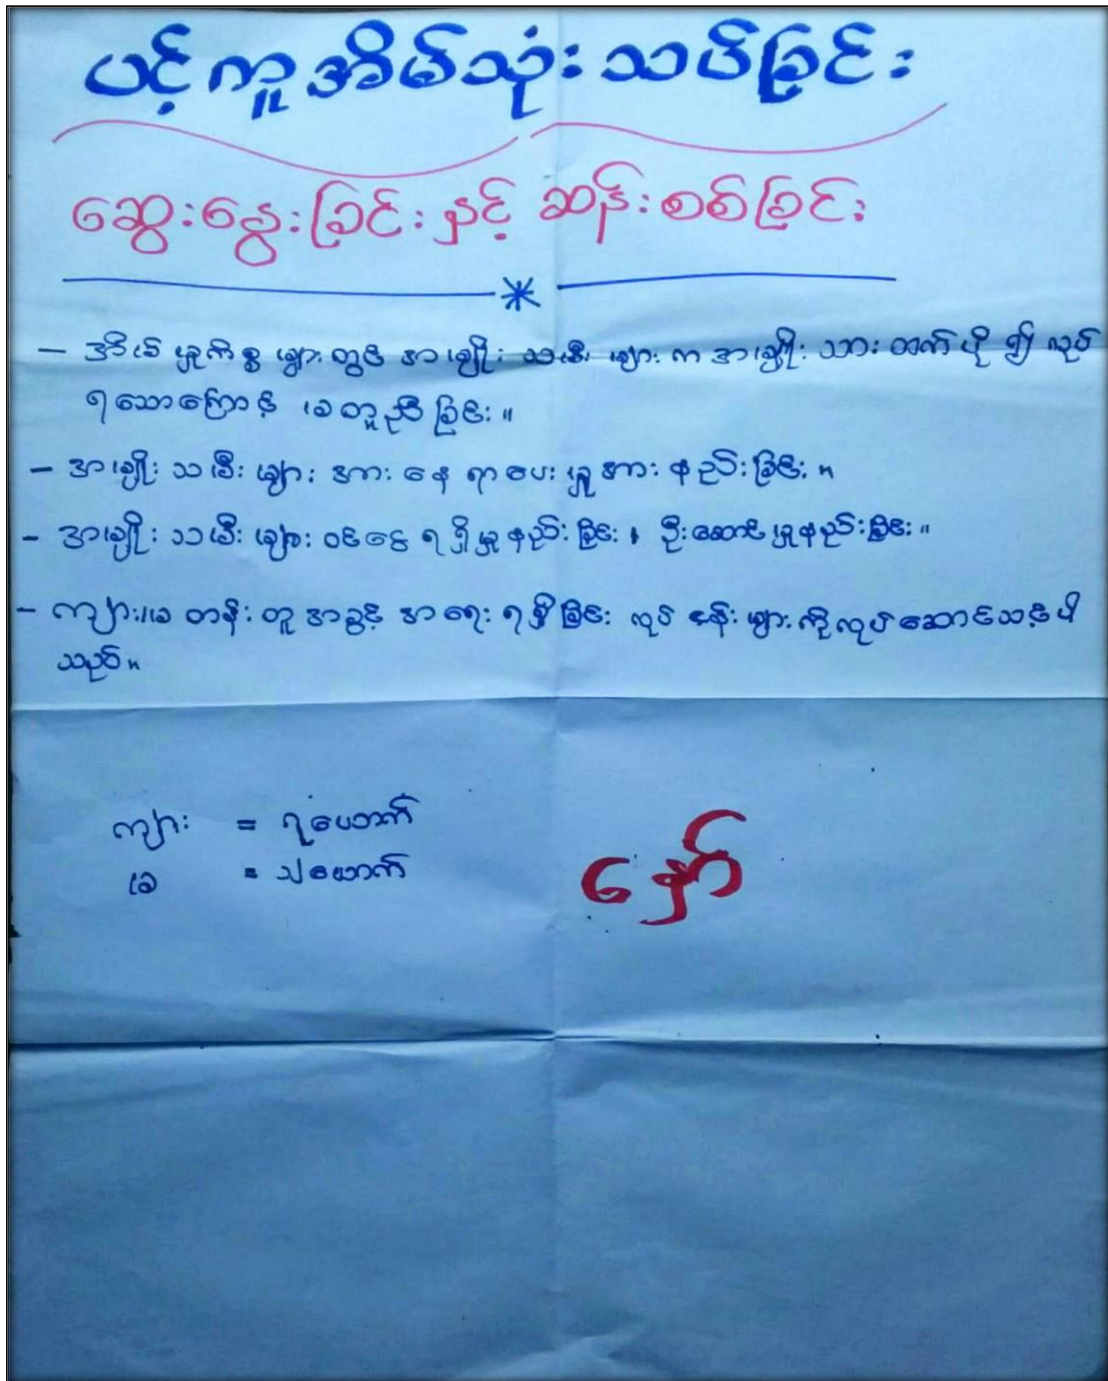 ပင့်ကူအိမ်သုံးသပ်ခြင်း
ဆွေးနွေးခြင်းနှင့် ဆန်းစစ်ခြင်း
- အိမ်မှုကိစ္စများတွင် အမျိုးသမီးများက အမျိုးသားထက်ပို၍ လုပ်
ရသောကြောင့် မတူညီခြင်း။
- အမျိုးသမီးများအား နေရာပေးမှုအားနည်းခြင်း။
- အမျိုးသမီးများ ဝင်ငွေရရှိမှုနည်းခြင်း၊ ဦးဆောင်မှုနည်းခြင်း။
- ကျား/မ တန်းတူအခွင့်အရေးရရှိခြင်း လုပ်ငန်းများကိုလုပ်ဆောင်သင့်ပါ
သည်။
ကျား = ၇ယောက်
မ = ၁၂ယောက်